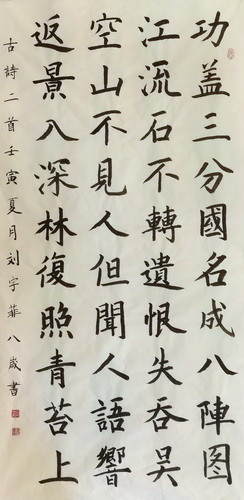 功盖三分國名成八陣图
江流石不轉遺恨失吞吴
空山不見人但聞人語響
返景入深林復照青苔上
古詩二首壬寅夏月刘宇菲八歲書